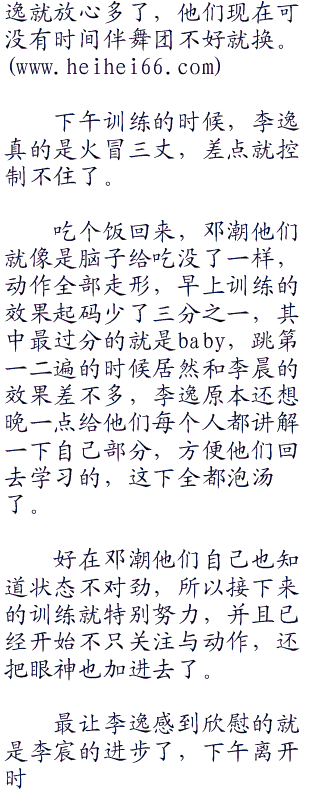 逸就放心多了，他们现在可
没有时间伴舞团不好就换。
(www.heihei66.com)
下午训练的时候，李逸
真的是火冒三丈，差点就控
制不住了。
吃个饭回来，邓潮他们
就像是脑子给吃没了一样，
动作全部走形，早上训练的
效果起码少了三分之一，其
中最过分的就是baby，跳第
一二遍的时候居然和李晨的
效果差不多，李逸原本还想
晚一点给他们每个人都讲解
一下自己部分，方便他们回
去学习的，这下全都泡汤
了。
好在邓潮他们自己也知
道状态不对劲，所以接下来
的训练就特别努力，并且已
经开始不只关注与动作，还
把眼神也加进去了。
最让李逸感到欣慰的就
是李宸的进步了，下午离开
时